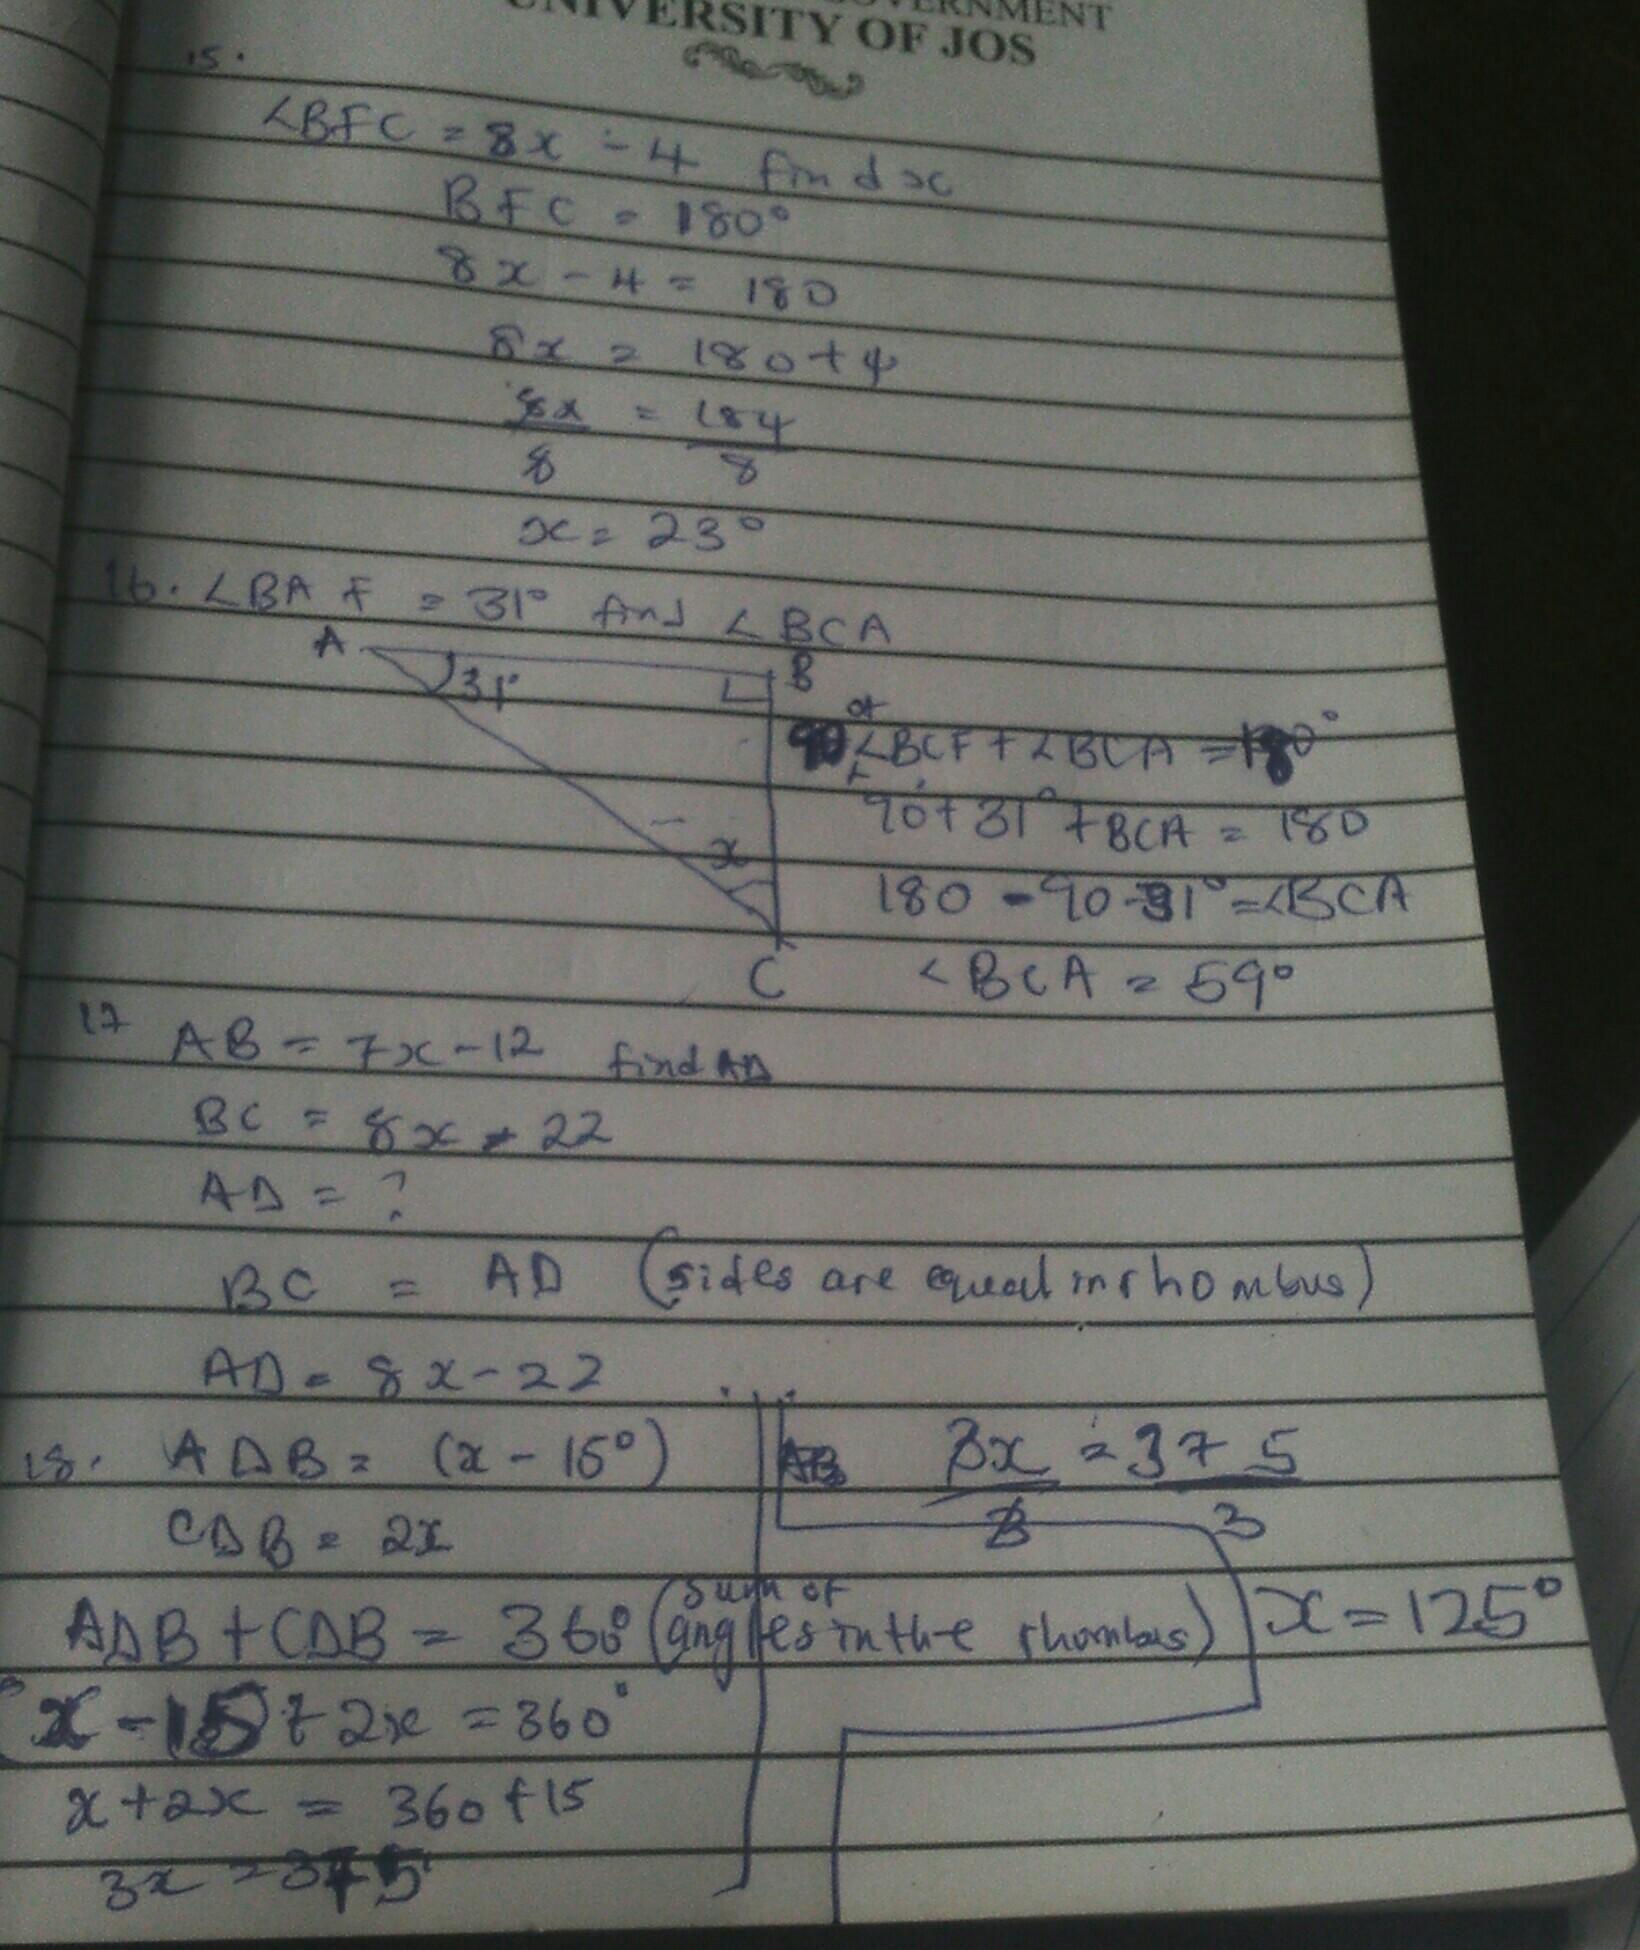 UNIVERSITY OF JOS
15.
<BFC = 8x - 4 find x
BFC = 180°
8x - 4 = 180
8x = 180+4
8x = 184
8 8
x = 23°
16. <BAF = 31° find <BCA
A
B
31°
x
C
<BCF + <BCA = 180°
90 + 31° + BCA = 180
180 - 90 - 31° = <BCA
<BCA = 59°
17 AB = 7x-12 find AD
BC = 8x - 22
AD = ?
BC = AD (sides are equal in rhombus)
AD = 8x-22
18. ADB = (x - 15°)
CDB = 2x
ADB + CDB = 360° (sum of angles in the rhombus)
x - 15) + 2x = 360°
x + 2x = 360 + 15
3x = 375
3x = 375
3 3
x = 125°